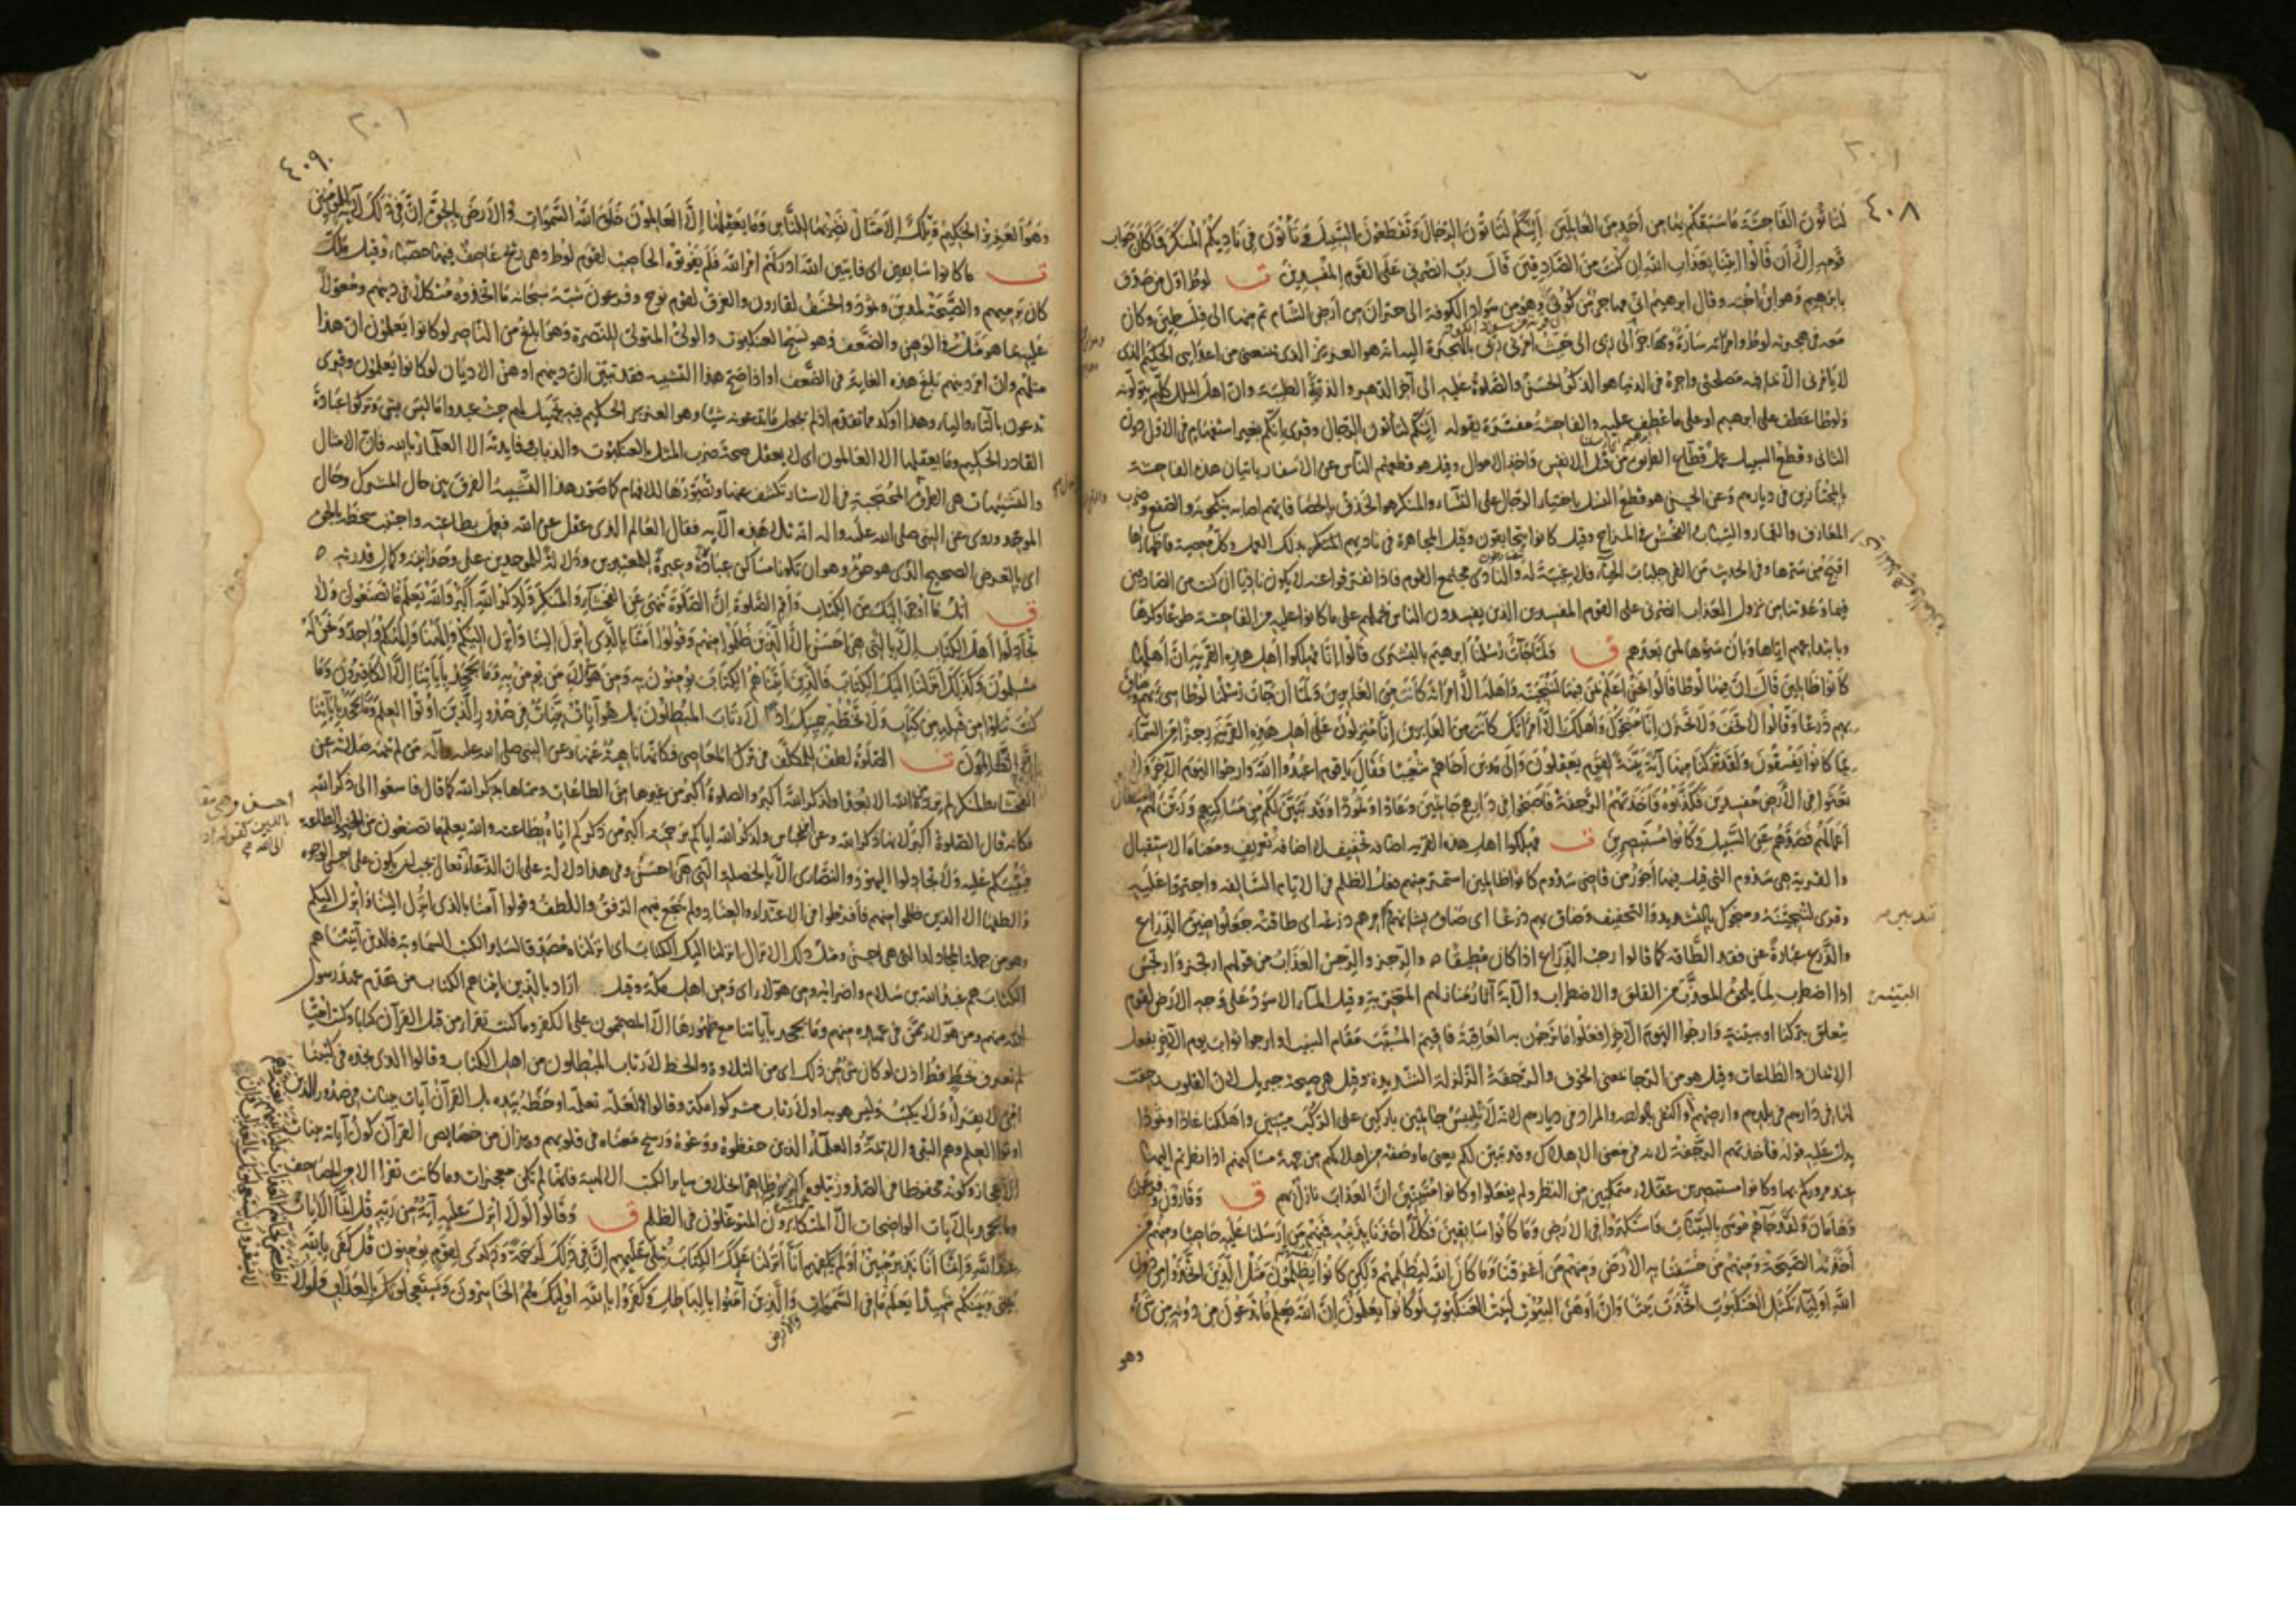 ٤٠٨
لتأتون الفاحشة ما سبقكم بها من أحد من العالمين أئنكم لتأتون الرجال وتقطعون السبيل وتأتون في ناديكم المنكر فما كان جواب
قومه إلا أن قالوا ائتنا بعذاب الله إن كنت من الصادقين قال رب انصرني على القوم المفسدين ق لوط اول من صدق
بابرهيم وهو ابن اخته وقال ابرهيم اني مهاجر من كوثى وهو من سواد الكوفة الى حران من ارض الشام ثم منها الى فلسطين وكان
معه في هجرته لوط وامرأته سارة وهاجر الى ربي الى حيث امرني ربي بالهجرة اليه انه هو العزيز الذي يمنعني من اعدائي الحكيم الذي
لا يأمرني الا بما فيه مصلحتي واجره في الدنيا هو الذكر الحسن والصلوة عليه الى آخر الدهر والذرية الطيبة وان اهل الملل كلهم يتولونه
ولوطا عطف على ابرهيم او على ما عطف عليه والفاحشة مفسرة بقوله أئنكم لتأتون الرجال وقرى انكم بغير استفهام في الاول دون
الثاني وقطع السبيل عمل قطاع الطريق من قتل الانفس واخذ الاموال وقيل هو قطعهم الناس عن الاسفار باتيان هذه الفاحشة
بالمجتازين في ديارهم وعن الحسن هو قطع النسل باختيار الرجال على النساء والمنكر هو الخذف بالحصا فايهم اصابه ينكحونه والصفع وضرب
المعازف والقمار والسباب والفحش في المزاح وقيل كانوا يتحابقون وقيل المجاهرة في ناديهم المنكر بذلك العمل وكل معصية فاظهارها
اقبح من سترها وفي الحديث من القى جلباب الحياء فلا غيبة له والنادى مجتمع القوم فاذا تفرقوا عنه لا يكون ناديا ان كنت من الصادقين
فيما وعدتنا من نزول العذاب انصرني على القوم المفسدين الذين يفسدون الناس بحملهم على ما كانوا عليه من الفاحشة طوعا وكرها
وبابتداعهم اياها وبان سنوها لمن بعدهم ق ولما جاءت رسلنا ابرهيم بالبشرى قالوا إنا مهلكوا أهل هذه القرية إن أهلها
كانوا ظالمين قال إن فيها لوطا قالوا نحن أعلم بمن فيها لننجينه وأهله إلا امرأته كانت من الغابرين ولما أن جاءت رسلنا لوطا سيء بهم وضاق
بهم ذرعا وقالوا لا تخف ولا تحزن إنا منجوك وأهلك إلا امرأتك كانت من الغابرين إنا منزلون على أهل هذه القرية رجزا من السماء
بما كانوا يفسقون ولقد تركنا منها آية بينة لقوم يعقلون وإلى مدين أخاهم شعيبا فقال يا قوم اعبدوا الله وارجوا اليوم الآخر ولا
تعثوا في الأرض مفسدين فكذبوه فأخذتهم الرجفة فأصبحوا في دارهم جاثمين وعادا وثمود وقد تبين لكم من مساكنهم وزين لهم الشيطان
أعمالهم فصدهم عن السبيل وكانوا مستبصرين ق مهلكوا اهل هذه القرية اضافة تخفيف لا اضافة تعريف ومعناه الاستقبال
والقرية هي سدوم التي قيل فيها أجور من قاضي سدوم كانوا ظالمين استمر منهم فعل الظلم في الايام السالفة واجترؤا عليه
وقرى لننجينه ومنجوك بالتشديد والتخفيف وضاق بهم ذرعا اى ضاق بشانهم ذرعه اى طاقته جعلوا ضيق الذراع
والذرع عبارة عن فقد الطاقة كما قالوا رحب الذراع اذا كان مطيقا والرجز والرجس العذاب من قولهم ارتجز وارتجس
اذا اضطرب لما يلحق المعذب من القلق والاضطراب والآية آثار منازلهم الخربة وقيل الماء الاسود على وجه الارض لقوم
يتعلق بتركنا او ببينة وارجوا اليوم الآخر افعلوا ما ترجون به العاقبة فاقيم المسبب مقام السبب او ارجوا ثواب يوم الآخر بفعل
الايمان والطاعات وقيل هو من الرجا بمعنى الخوف والرجفة الزلزلة الشديدة وقيل هي صيحة جبريل لان القلوب رجفت
لها في دارهم في بلدهم وارضهم او اكتفى بالواحد والمراد في ديارهم لانه لا يلبس جاثمين باركين على الركب ميتين واهلكنا عادا وثمودا
يدل عليه قوله فاخذتهم الرجفة لانه في معنى الاهلاك وقد تبين لكم يعني ما وصفه من اهلاكهم من جهة مساكنهم اذا نظرتم اليها
عند مروركم بها وكانوا مستبصرين عقلاء متمكنين من النظر ولم يفعلوا او كانوا متبينين ان العذاب نازل بهم ق وقارون وفرعون
وهامان ولقد جاءهم موسى بالبينات فاستكبروا في الأرض وما كانوا سابقين فكلا أخذنا بذنبه فمنهم من أرسلنا عليه حاصبا ومنهم من
أخذته الصيحة ومنهم من خسفنا به الأرض ومنهم من أغرقنا وما كان الله ليظلمهم ولكن كانوا أنفسهم يظلمون مثل الذين اتخذوا من دون
الله أولياء كمثل العنكبوت اتخذت بيتا وإن أوهن البيوت لبيت العنكبوت لو كانوا يعلمون إن الله يعلم ما يدعون من دونه من شيء
وهو
٤٠٩
وهو العزيز الحكيم وتلك الأمثال نضربها للناس وما يعقلها إلا العالمون خلق الله السموات والأرض بالحق إن في ذلك لآية للمؤمنين
ق ما كانوا سابقين اى فايتين الله ادركهم امر الله فلم يفوتوه الحاصب لقوم لوط وهي ريح عاصف فيها حصباء وقيل ملك
كان يرميهم والصيحة لمدين وثمود والخسف لقارون والغرق لقوم نوح وفرعون شبه سبحانه ما اتخذوه متكلا في دينهم ومعولا
عليه بما هو مثل في الوهن والضعف وهو نسج العنكبوت والولي المتولي للنصرة وهو ابلغ من الناصر لو كانوا يعلمون ان هذا
مثلهم وان امر دينهم بلغ هذه الغاية في الضعف او اذا صح هذا التشبيه فقد تبين ان دينهم اوهن الاديان لو كانوا يعلمون وقرى
تدعون بالتاء والياء وهذا اوكد مما تقدم اذ لم يجعل ما يدعونه شيئا وهو العزيز الحكيم فيه تجهيل لهم حيث عبدوا ما ليس بشيء وتركوا عبادة
القادر الحكيم وما يعقلها الا العالمون اى لا يعقل صحة ضرب المثل بالعنكبوت والذباب وفايدته الا العلماء بالله فان الامثال
والتشبيهات هي الطرق المحتجبة في الاستار تكشف عنها وتصورها للافهام كما صور هذا التشبيه الفرق بين حال المشرك وحال
الموحد وروى عن النبي صلى الله عليه واله انه تلا هذه الآية فقال العالم الذي عقل عن الله فعمل بطاعته واجتنب سخطه بالحق
اى بالغرض الصحيح الذي هو حق وهو ان تكونا مساكن عباده وعبرة للمعتبرين ودلالة للموحدين على وحدانيته وكمال قدرته
ق اتل ما أوحي إليك من الكتاب وأقم الصلوة إن الصلوة تنهى عن الفحشاء والمنكر ولذكر الله أكبر والله يعلم ما تصنعون ولا
تجادلوا أهل الكتاب إلا بالتي هي أحسن إلا الذين ظلموا منهم وقولوا آمنا بالذي أنزل إلينا وأنزل إليكم وإلهنا وإلهكم واحد ونحن له
مسلمون وكذلك أنزلنا إليك الكتاب فالذين آتيناهم الكتاب يؤمنون به ومن هؤلاء من يؤمن به وما يجحد بآياتنا إلا الكافرون وما
كنت تتلوا من قبله من كتاب ولا تخطه بيمينك إذا لارتاب المبطلون بل هو آيات بينات في صدور الذين أوتوا العلم وما يجحد بآياتنا
إلا الظالمون ق الصلوة لطف للمكلف في ترك المعاصي فكانها ناهية عنها وعن النبي صلى الله عليه وآله من لم تنهه صلاته عن
الفحشاء والمنكر لم يزدد من الله الا بعدا ولذكر الله أكبر والصلوة أكبر من غيرها من الطاعات وسماها بذكر الله كما قال فاسعوا الى ذكر الله
فكانه قال الصلوة أكبر لانها ذكر الله وعن ابن عباس ولذكر الله اياكم برحمته اكبر من ذكركم اياه بطاعته والله يعلم ما تصنعون من الخير والطاعة
فيثيبكم عليه ولا تجادلوا اليهود والنصارى الا بالخصلة التي هي احسن وفي هذا دلالة على ان الدعاء الى الله تعالى يجب ان يكون على احسن الوجوه
والطفها الا الذين ظلموا منهم فافرطوا في الاعتداء والعناد ولم ينجع فيهم الرفق واللطف وقولوا آمنا بالذي انزل الينا وانزل اليكم
وهو من جملة المجادلة التي هي احسن ومثل ذلك الانزال انزلنا اليك الكتاب اى انزلناه مصدقا لساير الكتب السماوية فالذين آتيناهم
الكتاب هم عبد الله بن سلام واضرابه ومن هؤلاء اى ومن اهل مكة وقيل اراد بالذين آتيناهم الكتاب من تقدم عهد رسول
الله منهم ومن هؤلاء ممن في عهده منهم وما يجحد بآياتنا مع ظهورها الا المصممون على الكفر وما كنت تقرأ من قبل القرآن كتابا وكنت اميا
لم تعرف بخط قط اذن لو كان شيء من ذلك اى من التلاوة والخط لارتاب المبطلون من اهل الكتاب وقالوا الذي نجده في كتبنا
امي لا يقرأ ولا يكتب وليس هو به او لارتاب مشركوا مكة وقالوا لعله تعلمه او خطه بيده بل القرآن آيات بينات في صدور الذين
اوتوا العلم وهم النبي والائمة والعلماء الذين حفظوه ووعوه ورسخ معناه في قلوبهم وهذان من خصايص القرآن كون آياته بينات
الاعجاز وكونه محفوظا في الصدور يتلوه اكثر الامة ظاهرا بخلاف ساير الكتب الالهية فانها لم تكن معجزات وما كانت تقرأ الا من المصاحف
وما يجحد بالآيات الواضحات الا المتكابرون المتوغلون في الظلم ق وقالوا لولا أنزل عليه آية من ربه قل إنما الآيات
عند الله وإنما أنا نذير مبين أولم يكفهم أنا أنزلنا عليك الكتاب يتلى عليهم إن في ذلك لرحمة وذكرى لقوم يؤمنون قل كفى بالله
بيني وبينكم شهيدا يعلم ما في السموات والأرض والذين آمنوا بالباطل وكفروا بالله أولئك هم الخاسرون ويستعجلونك بالعذاب ولولا